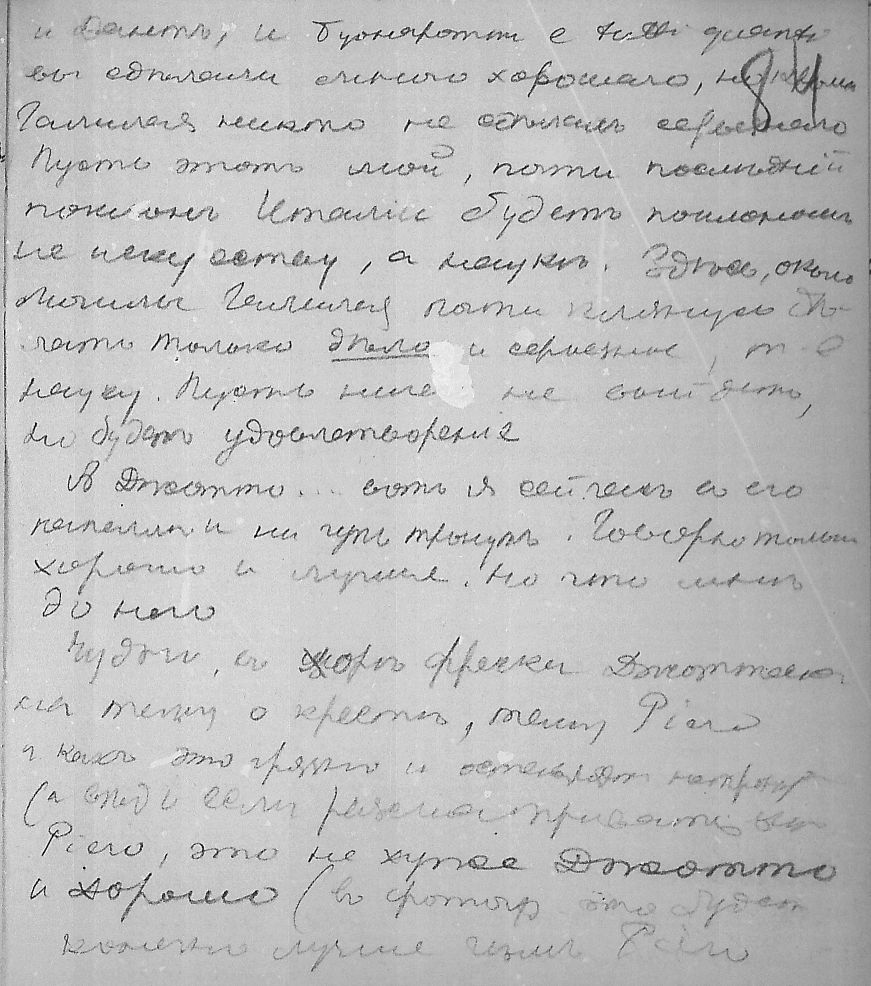 и Дантъ, и Буонаротти e tutti quanti 84
вы сдѣлали много хорошаго, но кромѣ
Галилея никто не сдѣлалъ серьезнаго
Пусть этотъ мой, почти послѣдній
поклонъ Италіи будетъ поклономъ
не искусству, а наукѣ. Здѣсь, около
могилы Галилея почти клянусь дѣ-
лать только дѣло и серьезное, т е
науку. Пусть не выйдетъ,
но будетъ удовлетвореніе
А Джотто... вотъ я сейчасъ въ его
капеллѣ и ни чуть тронутъ. Говорю только
хорошо и лучше. Но что мнѣ
до него
Чудно, въ хорѣ фрески
на тему о крестѣ, тему Piero
и какъ это грязно и
(а вѣдь если разсматривать
Piero, это не хуже Джотто
и хорошо (въ фотогр. это будетъ
конечно лучше чѣмъ Piero